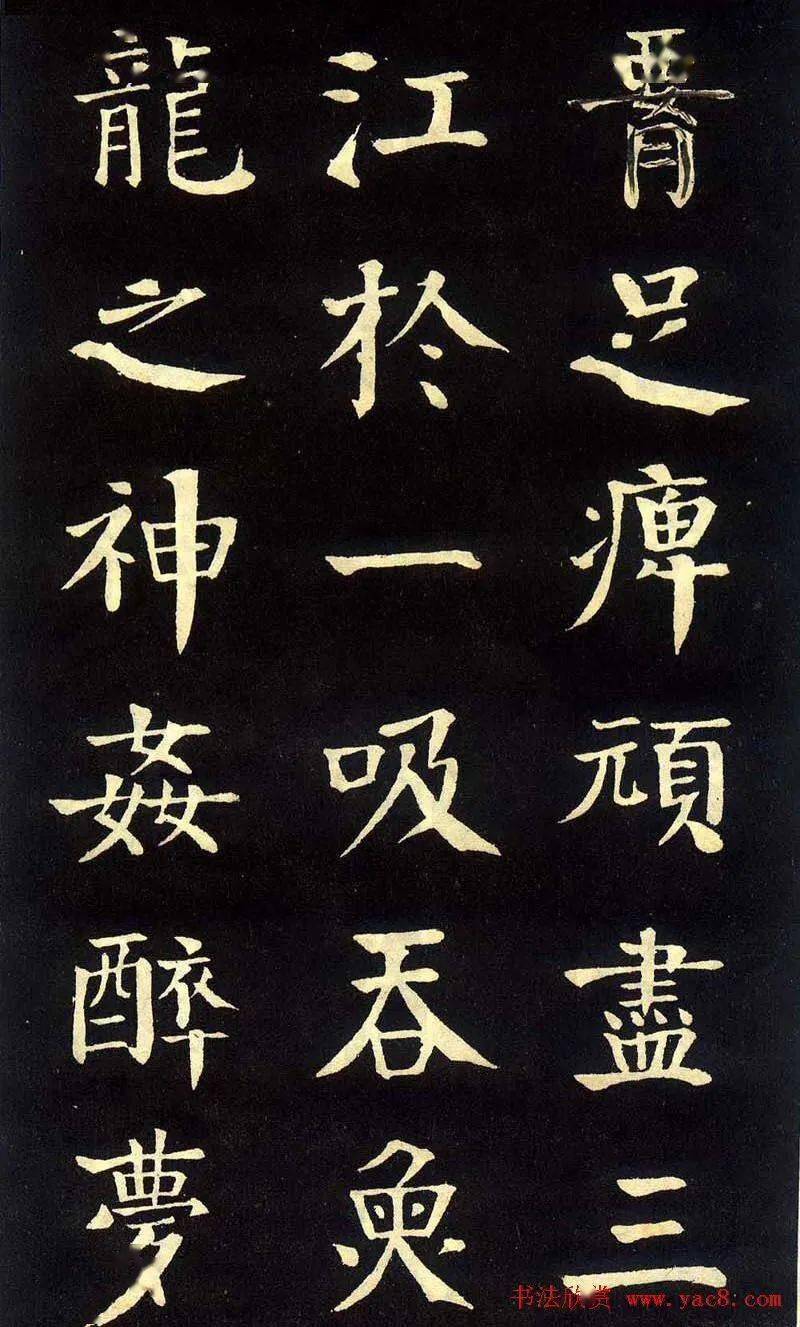 足痺頑盡三
江於一吸吞魚
龍之神姦醉夢
书法欣赏 www.yac8.com